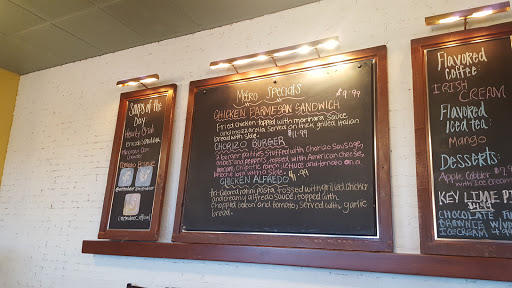 Soups of the
Day
Hearty Crab
Tomato Bisque
Metro Specials
CHICKEN PARMESAN SANDWICH $9.99
Fried chicken topped with marinara sauce
and mozzarella served on thick grilled Italian
bread with side.
CHORIZO BURGER $11.99
2 burger patties stuffed with chorizo sausage,
onions and peppers, topped with American cheese,
bacon, chipotle ranch, lettuce and tomato on a
with a side.
CHICKEN ALFREDO
Tri-colored rotini pasta tossed with grilled chicken
and creamy alfredo sauce, topped with
chopped bacon and tomato, served with garlic
bread.
Flavored
Coffee:
IRISH
CREAM
Flavored
Iced tea:
Mango
Desserts:
Apple Cobbler
with Ice Cream
KEY LIME PI
CHOCOLATE
BROWNIE W/
ICECREAM